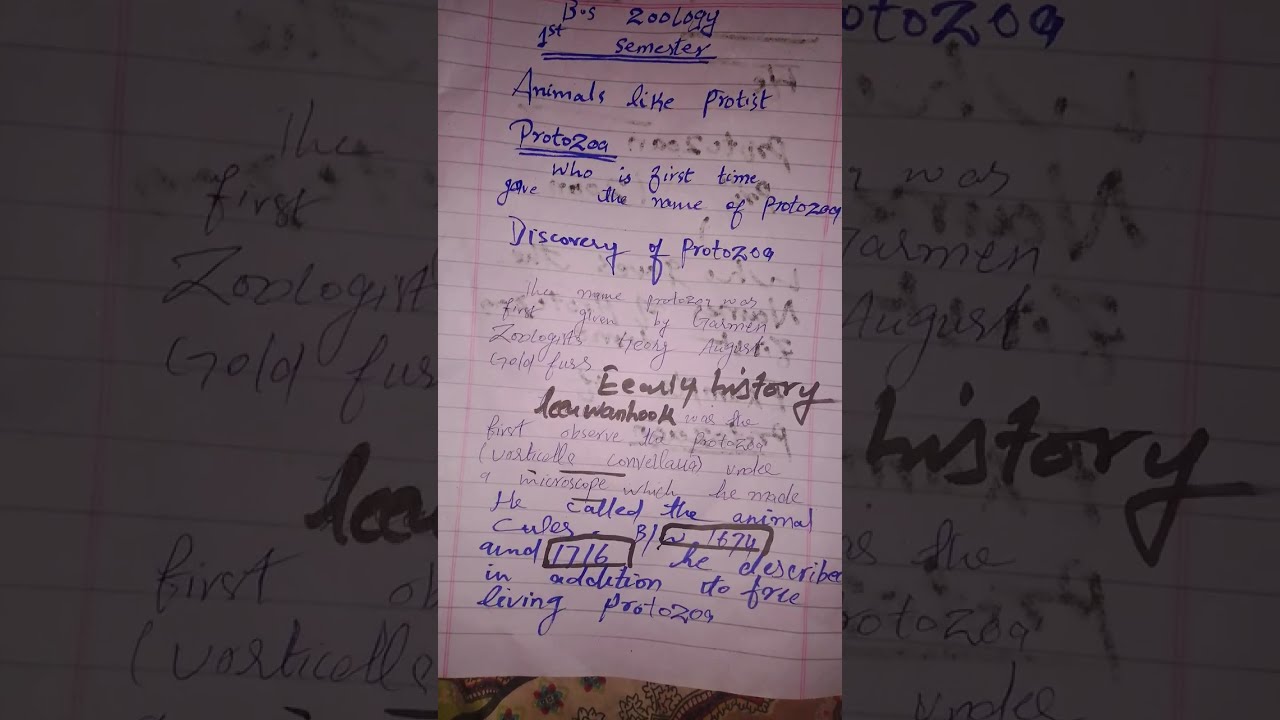 B.s Zoology
1st semester
Animals like Protist
Protozoa
Who is first time
gave the name of Protozoa
Discovery of Protozoa
The name protozoa was
first given by Garmen
Zoologists Georg August
Gold fuss
Eearly history
leeuwanhook was the
first observe the protozoa
(vorticella convellaria) under
a microscope which he made
He called the animal
cules. B/w 1674
and 1716 he describe
in addition to free
living Protozoa